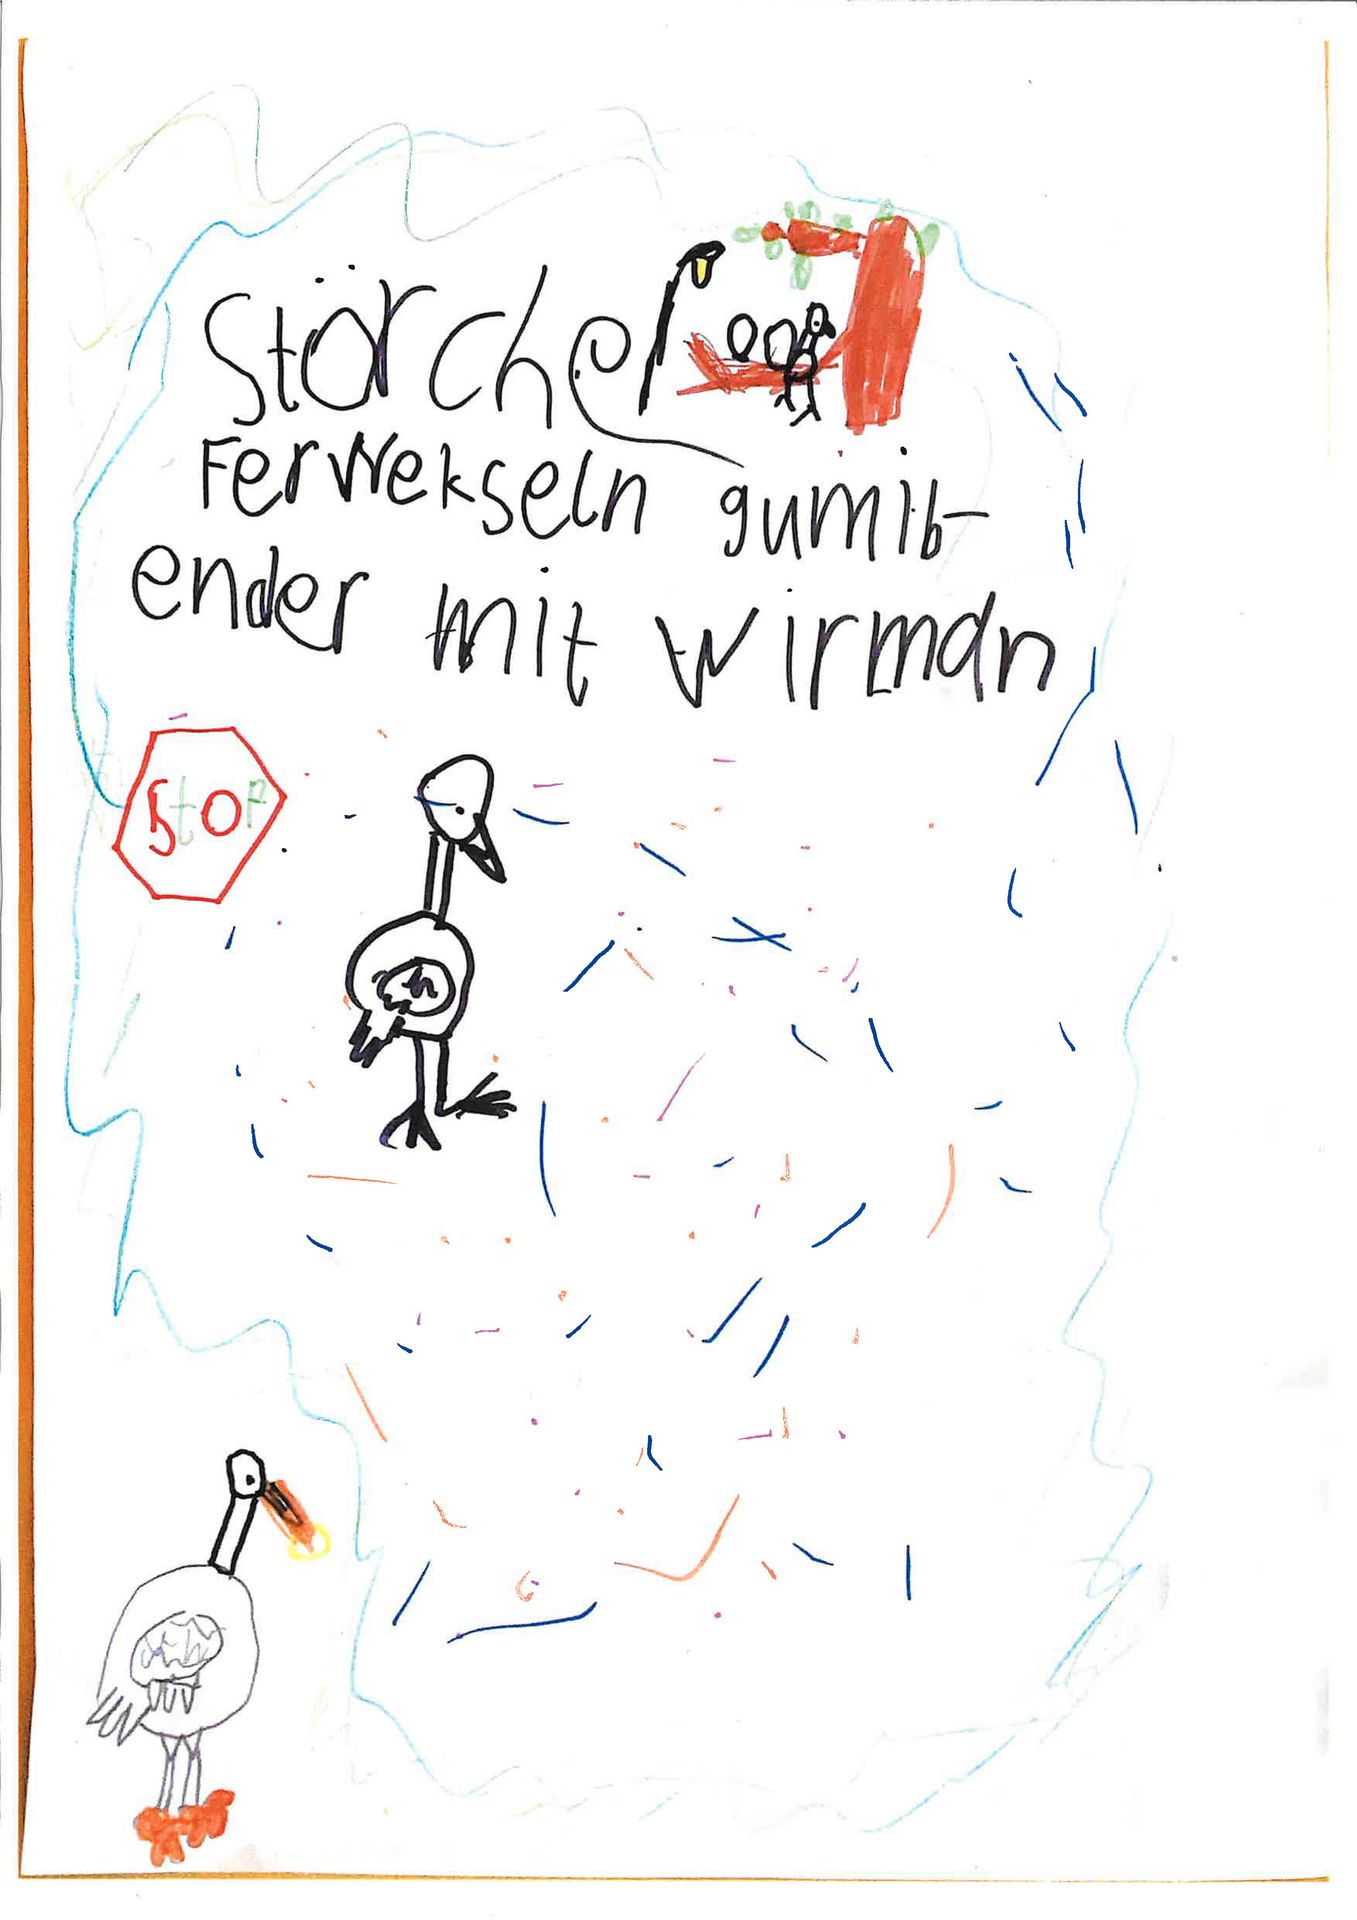 Störche
Ferwekseln gumib-
ender mit wirman
Stop